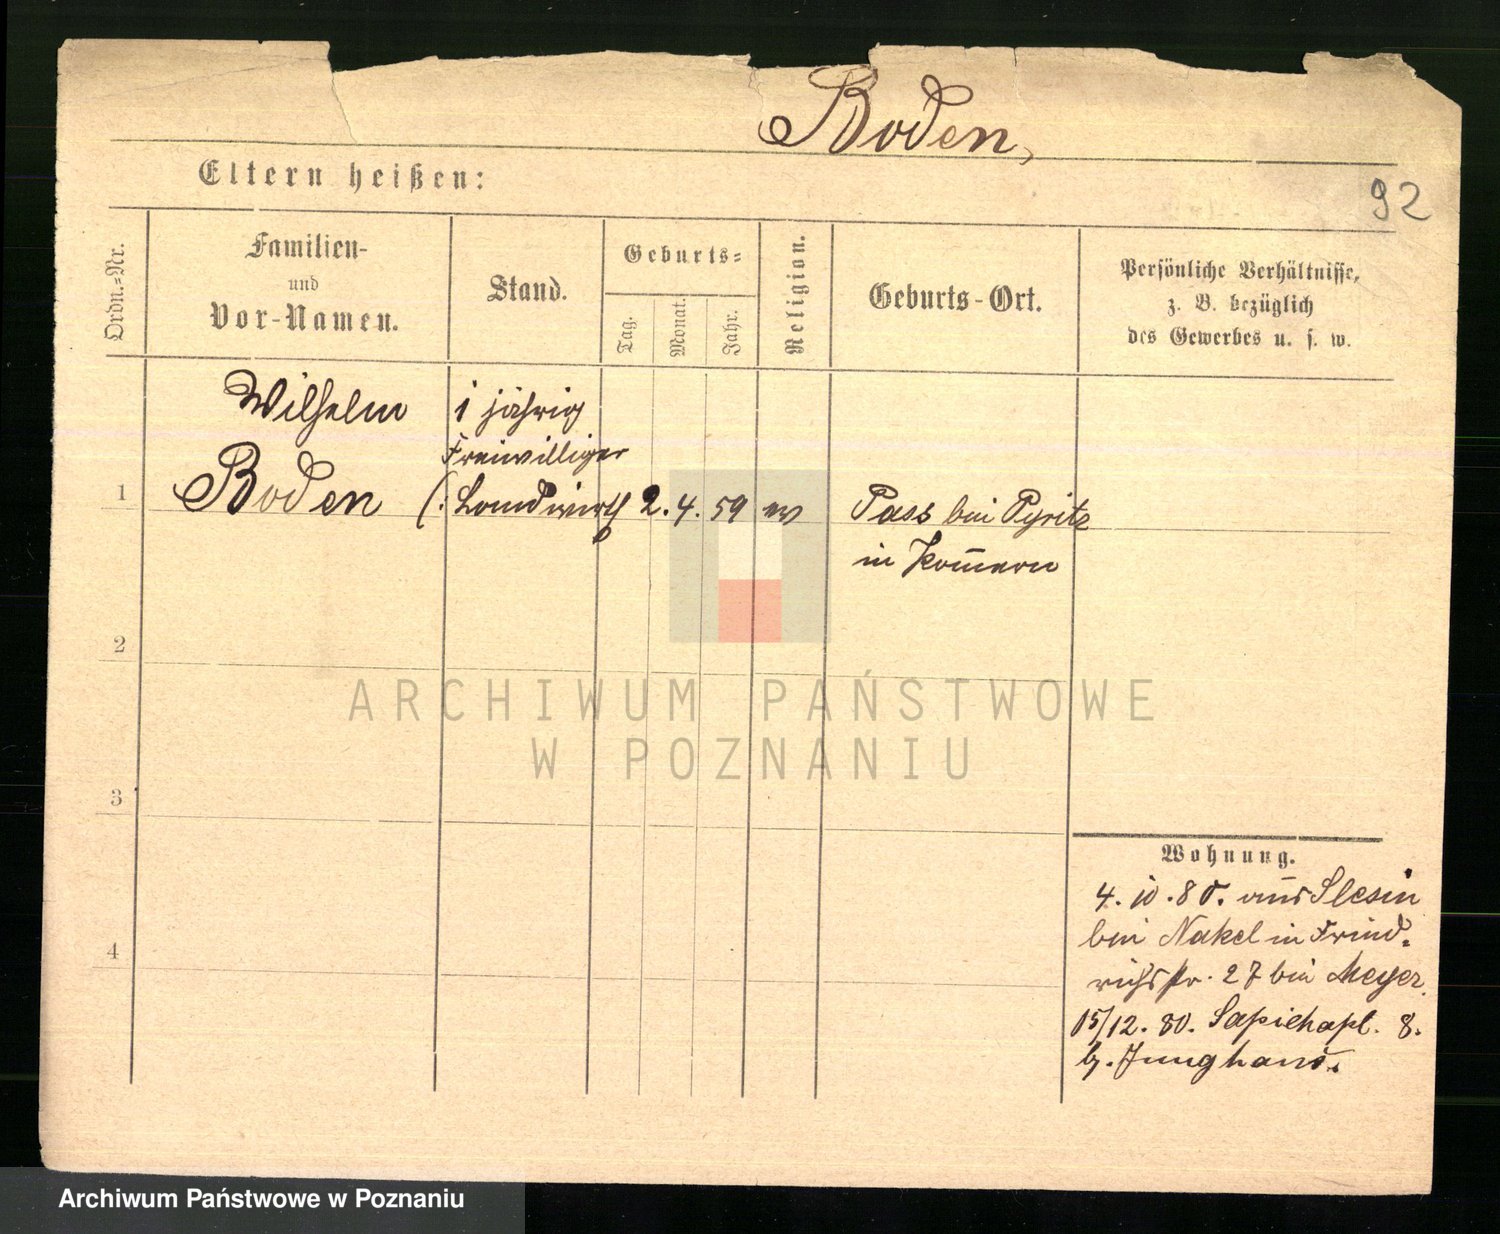 Boden,
92
Eltern heißen:
Ordn.-Nr.
Familien-
und
Vor-Namen.
Stand.
Geburts-
Tag.
Monat.
Jahr.
Religion.
Geburts-Ort.
Persönliche Verhältnisse,
z. B. bezüglich
des Gewerbes u. s. w.
1
Wilhelm
Boden
1 jährig
Freiwilliger
(: Landwirth
2. 4. 59 ev
Pass bei Pyritz
in Pom̄ern
2
3
4
Wohnung.
4. 10. 80. aus Slesin
bei Nakel in Fried-
richstr. 27 bei Meyer.
15/12. 80. Sapiehapl. 8.
b. Junghans.
ARCHIWUM PAŃSTWOWE
W POZNANIU
Archiwum Państwowe w Poznaniu